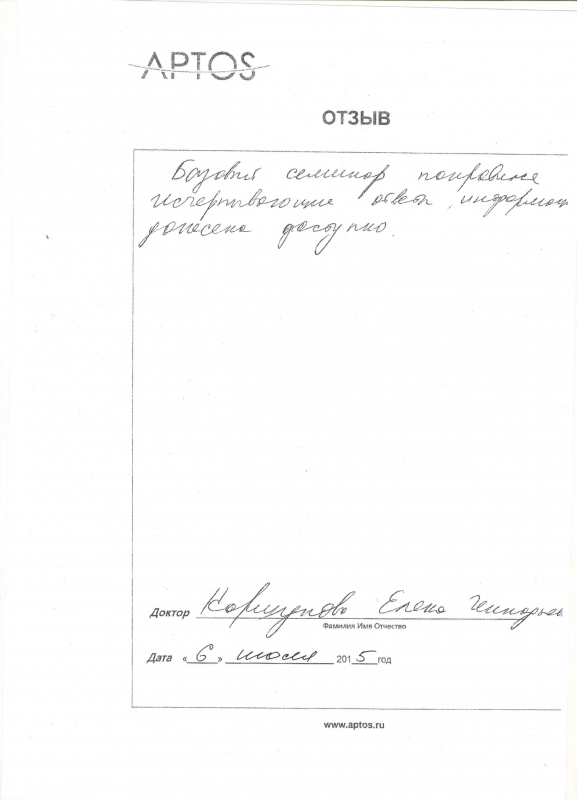 APTOS
ОТЗЫВ
Базовый семинар понравился
исчерпывающие ответы, информац
донесена доступно.
Доктор Елена
Фамилия Имя Отчество
Дата «6» июля 2015 год
www.aptos.ru